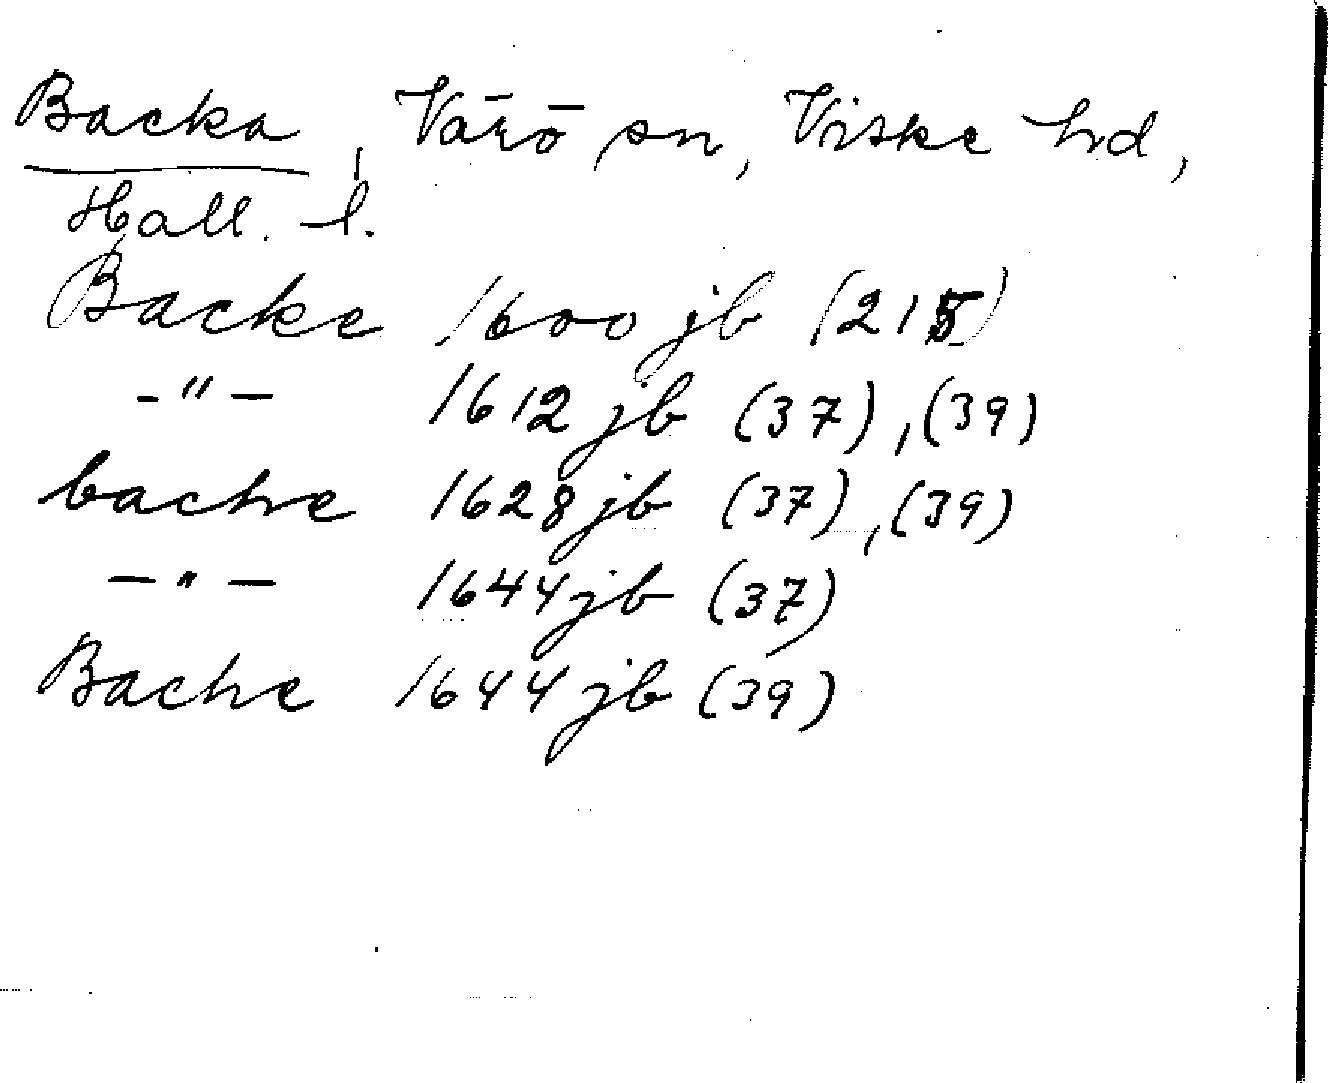 Backa, Värö sn, Viske hd,
Hall. l.
Backe 1600 jb (215)
-"- 1612 jb (37), (39)
bache 1628 jb (37), (39)
-"- 1644 jb (37)
Bache 1644 jb (39)